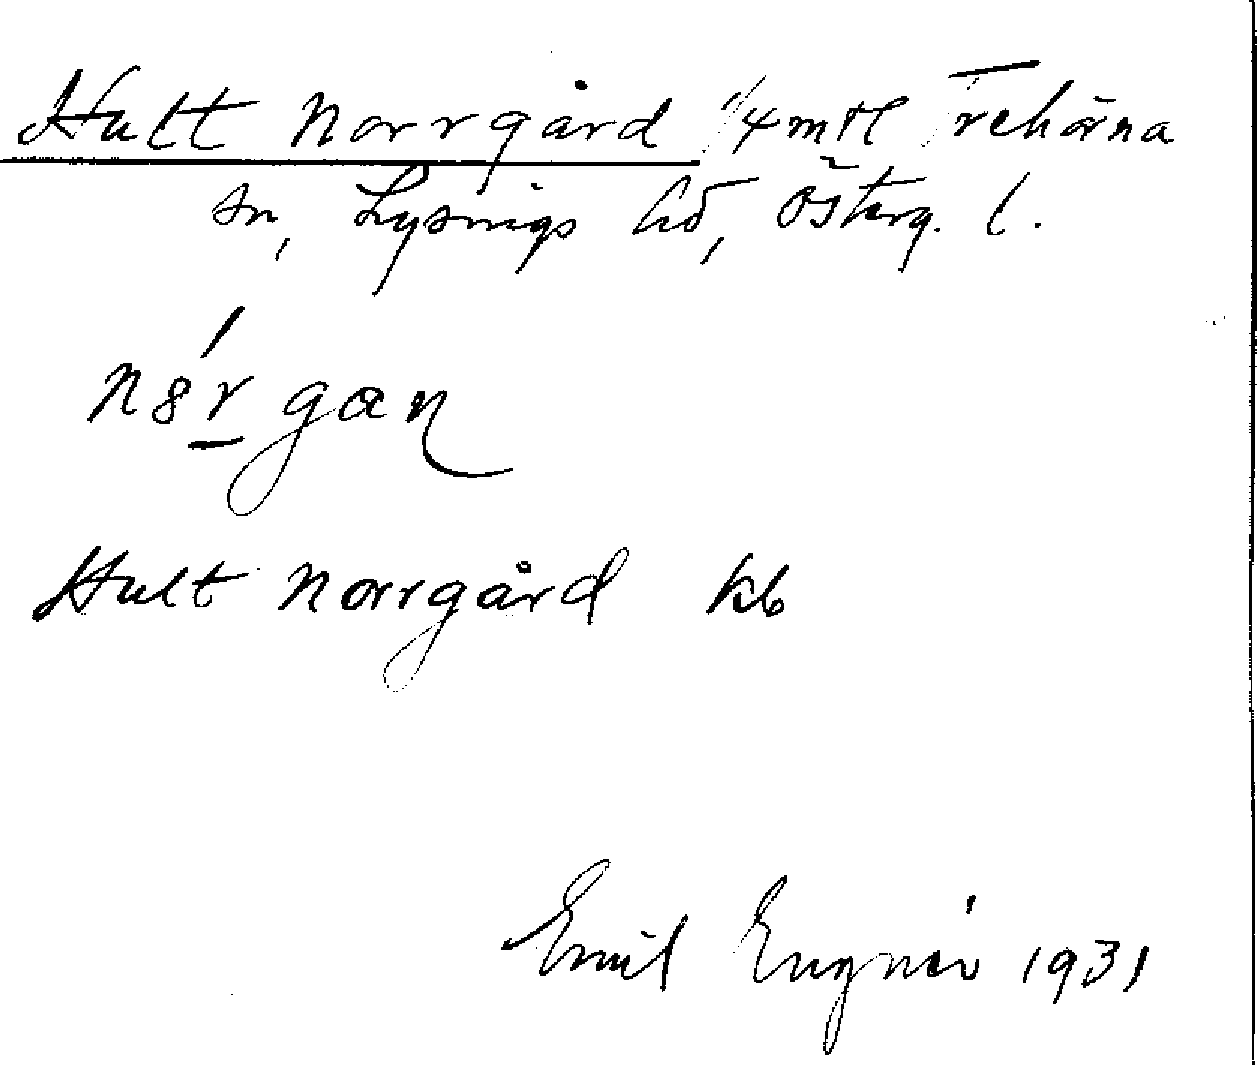 Hult Norrgård 1/4 mtl Trehörna
sn, Lysings hd, Österg. l.
n8́r gan
Hult Norrgård kb
Emil 1931